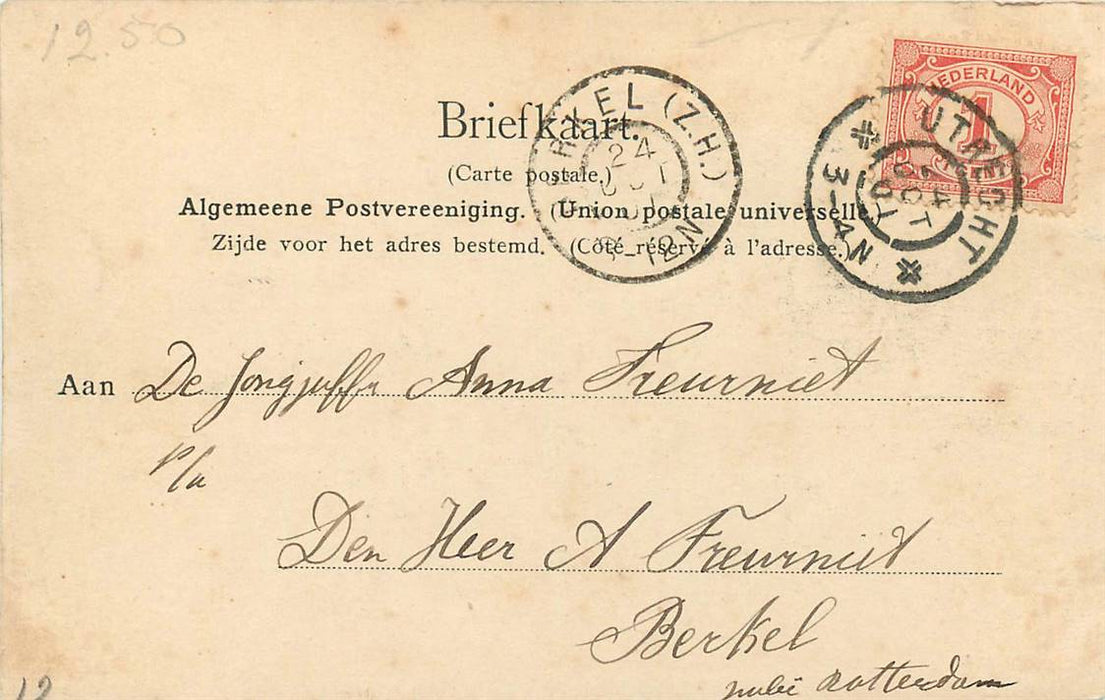 12.50
NEDERLAND
1
BERKEL (Z.H.)
24
OCT
01
8-12N
UTRECHT
24
OCT
01
3-4N
Briefkaart.
(Carte postale.)
Algemeene Postvereeniging. (Union postale universelle)
Zijde voor het adres bestemd. (Côté réservé à l'adresse.)
Aan De Jongjuffr Anna Freurniet
p/a
Den Heer A Freurniet
Berkel
Rotterdam
12